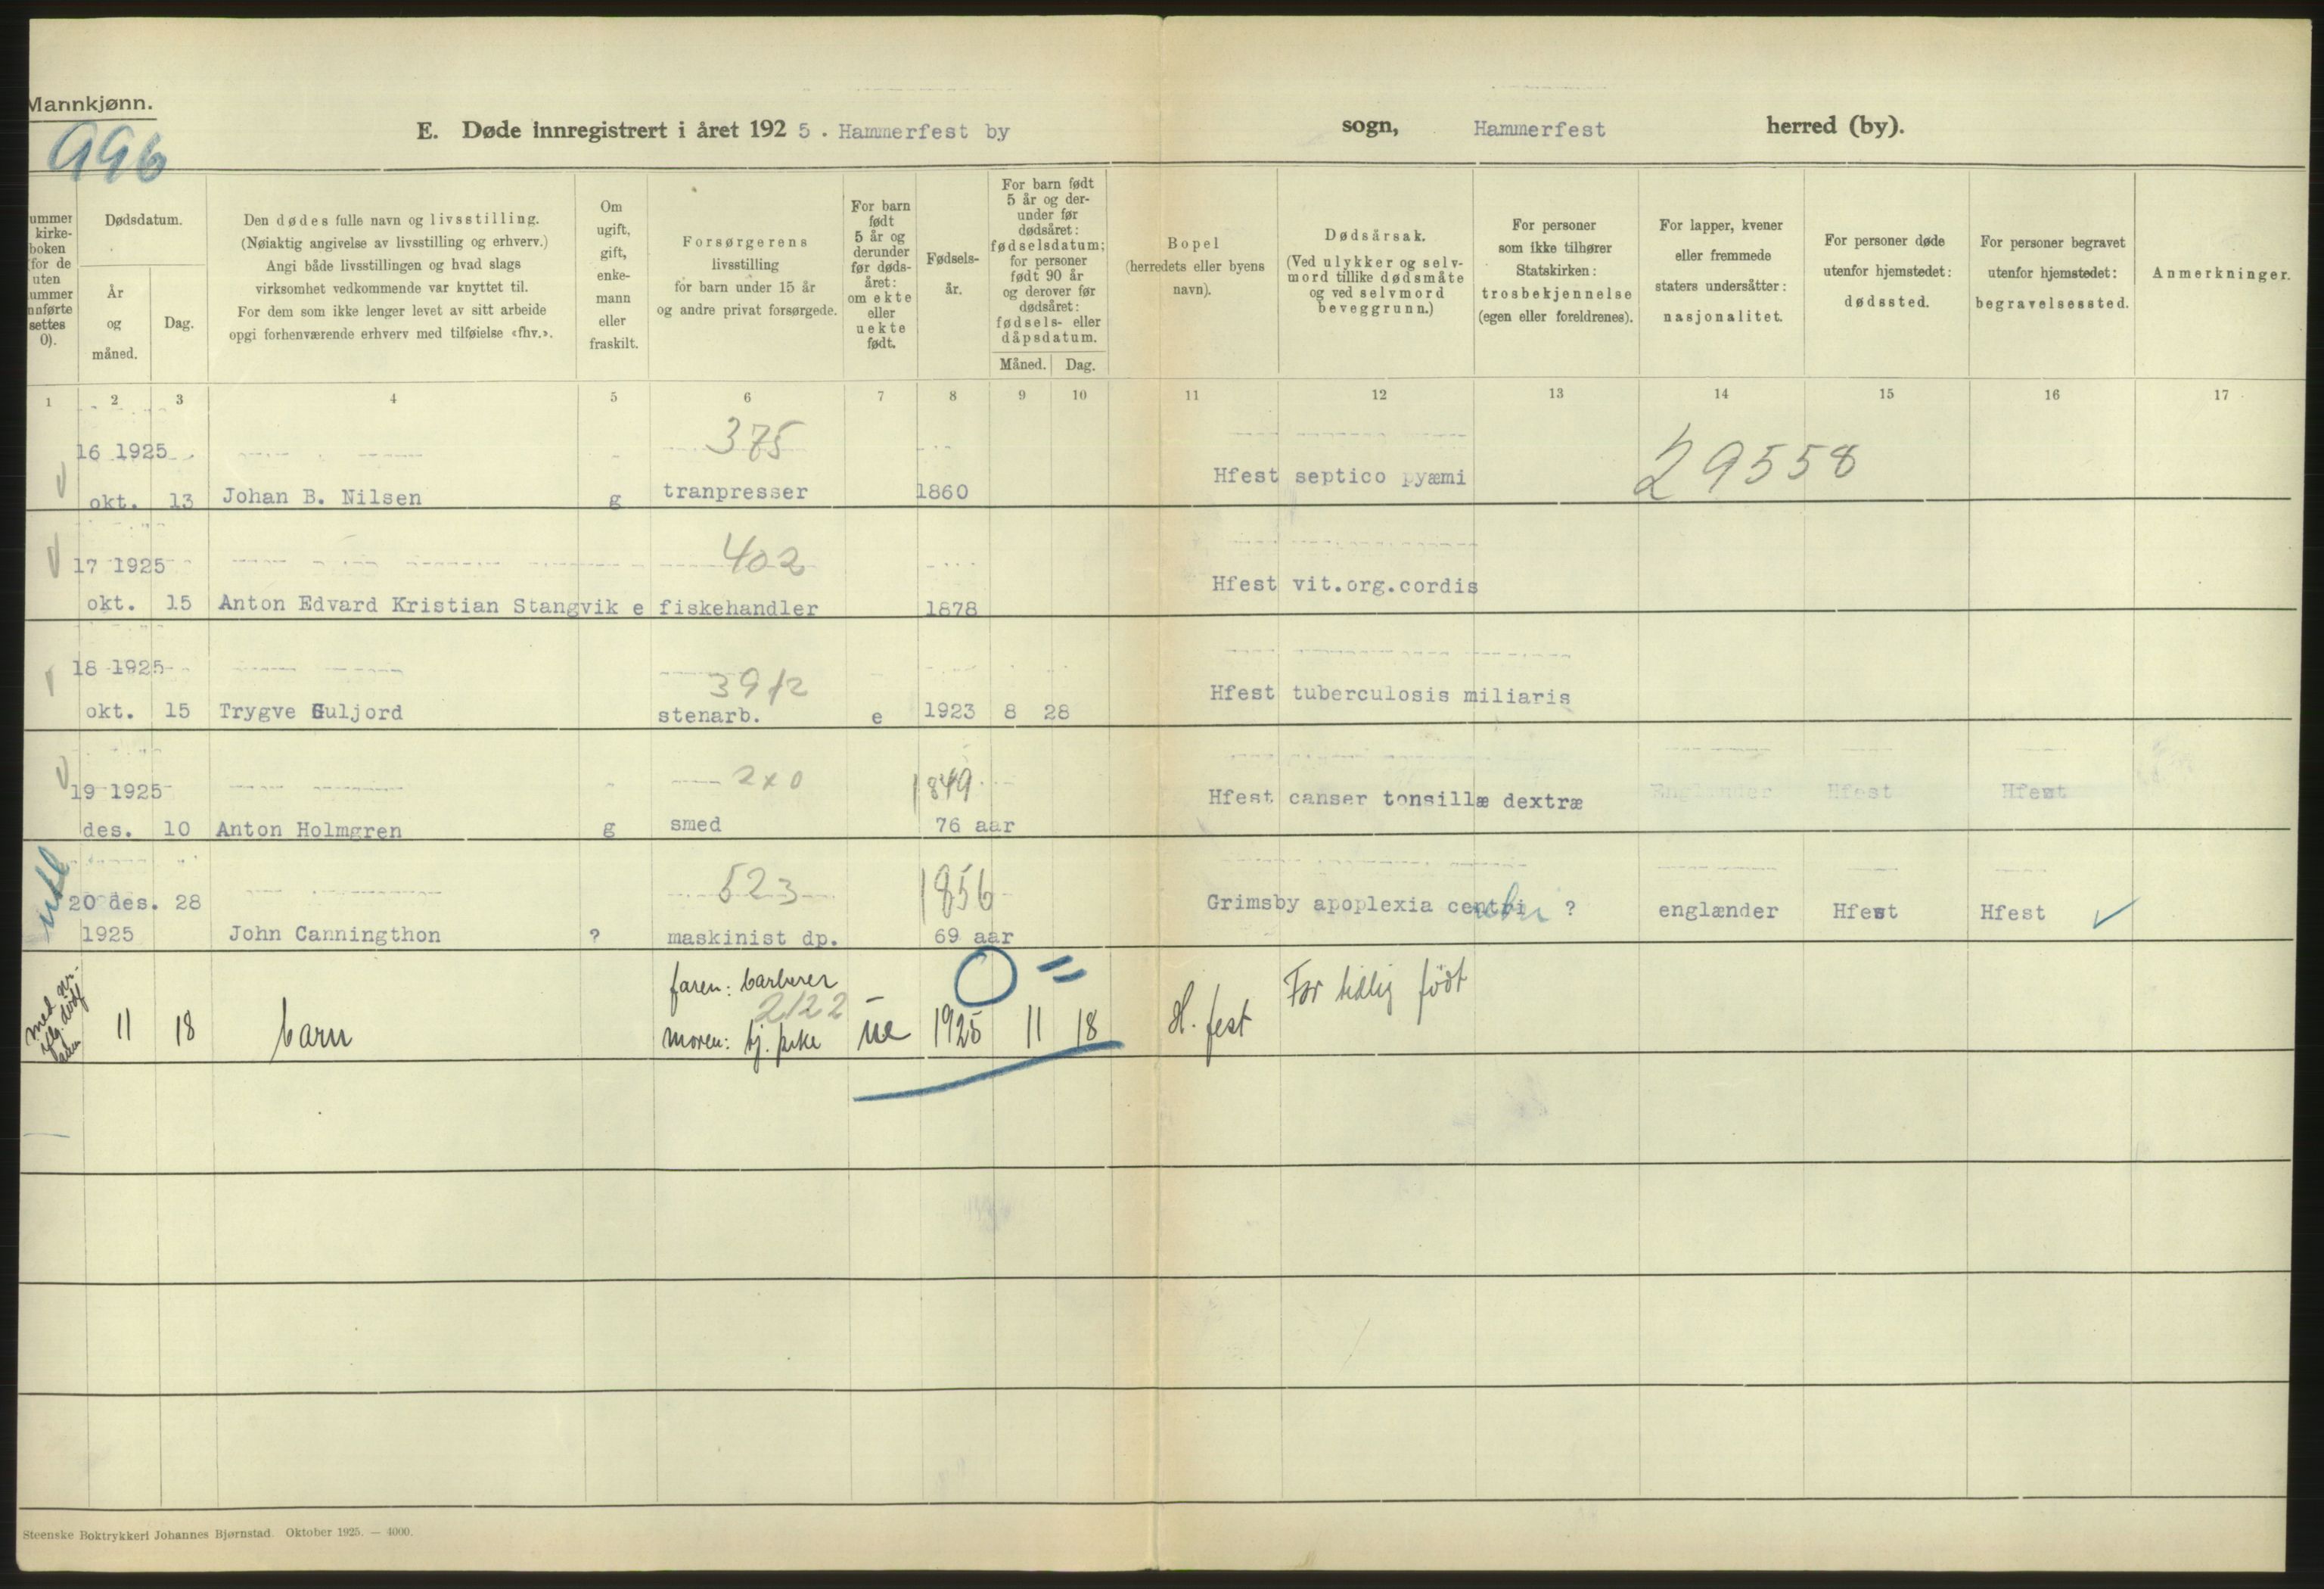 Mannkjønn.
996
E. Døde innregistrert i året 192 5 . Hammerfest by sogn, Hammerfest herred (by).
ummer kirke- boken (for de uten ummer nnførte settes 0).
Dødsdatum.
År og måned.
Dag.
Den dødes fulle navn og livsstilling.
(Nøiaktig angivelse av livsstilling og erhverv.)
Angi både livsstillingen og hvad slags
virksomhet vedkommende var knyttet til.
For dem som ikke lenger levet av sitt arbeide
opgi forhenværende erhverv med tilføielse «fhv.».
Om ugift, gift, enke- mann eller fraskilt.
Forsørgerens
livsstilling
for barn under 15 år
og andre privat forsørgede.
For barn født 5 år og derunder før døds- året: om ekte eller uekte født.
Fødsels- år.
For barn født 5 år og der- under før dødsåret: fødselsdatum; for personer født 90 år og derover før dødsåret: fødsels- eller dåpsdatum.
Måned. Dag.
Bopel
(herredets eller byens
navn).
Dødsårsak.
(Ved ulykker og selv-
mord tillike dødsmåte
og ved selvmord
beveggrunn.)
For personer
som ikke tilhører
Statskirken:
trosbekjennelse
(egen eller foreldrenes).
For lapper, kvener
eller fremmede
staters undersåtter:
nasjonalitet.
For personer døde
utenfor hjemstedet:
dødssted.
For personer begravet
utenfor hjemstedet:
begravelsessted.
Anmerkninger.
1 2 3 4 5 6 7 8 9 10 11 12 13 14 15 16 17
375
16 1925
Hfest septico pyæmi 29558
okt. 13 Johan B. Nilsen g tranpresser 1860
402
17 1925
Hfest vit.org.cordis
okt. 15 Anton Edvard Kristian Stangvik e fiskehandler 1878
18 1925
Hfest tuberculosis miliaris
okt. 15 Trygve Guljord stenarb. e 1923 8 28
1849
19 1925
Hfest canser tonsillæ dextræ Englænder Hfest Hfest
des. 10 Anton Holmgren g smed 76 aar
utl
523 1856
20 des. 28 Grimsby apoplexia ? englænder Hfest Hfest
1925 John Canningthon ? maskinist dp. 69 aar
faren: barberer
0 =
2122
11 18 barn moren: tj. pike ue 1925 11 18 H. fest For tidlig født
Steenske Boktrykkeri Johannes Bjørnstad. Oktober 1925. — 4000.